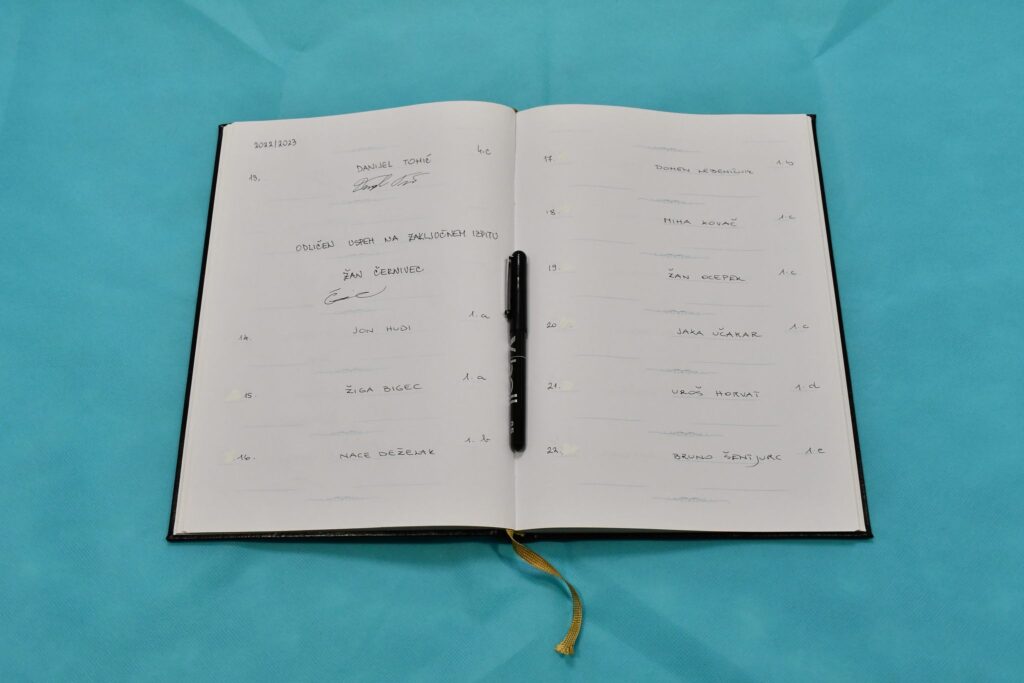 2022/2023
4.c
13. DANIJEL TOMIĆ
ODLIČEN USPEH NA ZAKLJUČNEM IZPITU
ŽAN ČERNIVEC
1.a
14. JON HUDI
1.a
15. ŽIGA BIGEC
1.b
16. NACE DEŽELAK
17. DOMEN 1.b
18. MIHA KOVAČ 1.c
19. ŽAN OCEPEK 1.c
20 JAKA UČAKAR 1.c
21. UROŠ HORVAT 1.d
22. BRUNO ŠENTJURC 1.e